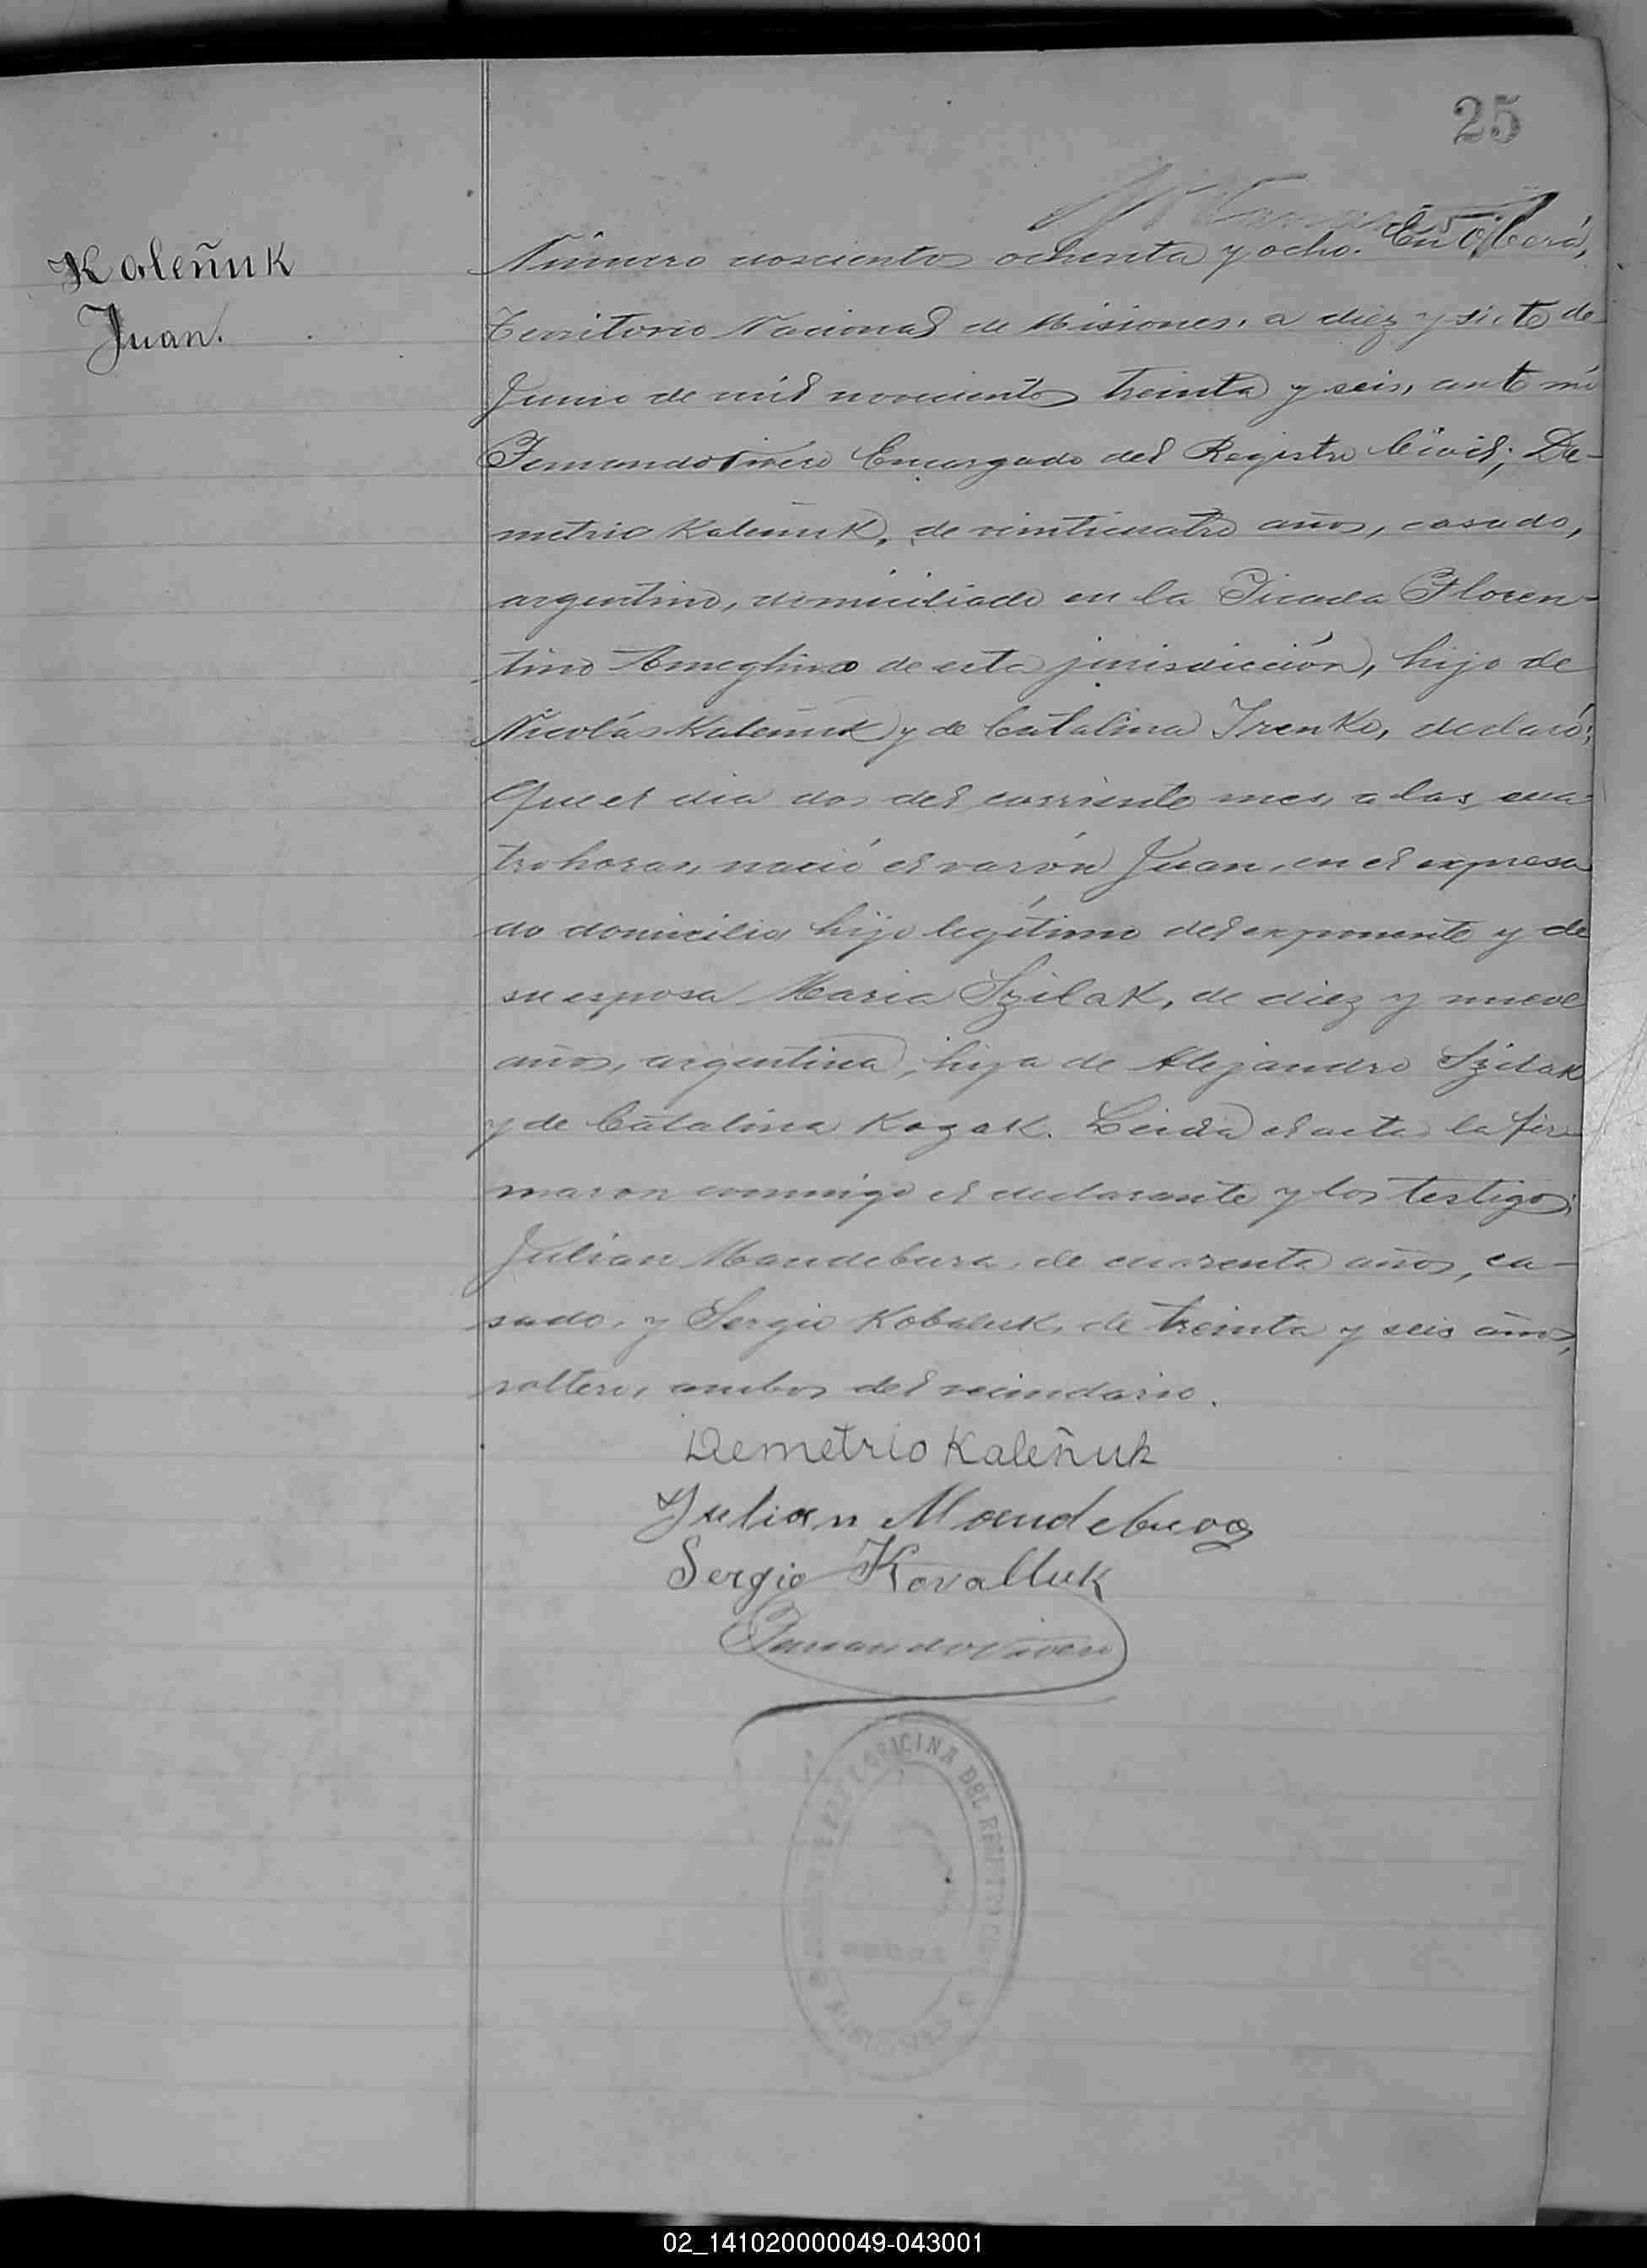 25
Kaleñuk
Juan.
Número doscientos ochenta y ocho. En Oberá,
Territorio Nacional de Misiones, a diez y siete de
Junio de mil novecientos treinta y seis, ante mí
Fernando Encargado del Registro Civil; De-
metrio Kaleñuk, de vinticuatro años, casado,
argentino, domiciliado en la Picada Floren-
tino Ameghino de esta jurisdicción, hijo de
Nicolás Kaleñuk y de Catalina Irenko, declaró;
Que el dia dos del corriente mes, a las cua-
tro horas, nació el varón Juan, en el expresa
do domicilio, hijo legítimo del exponente y de
su esposa Maria Szilak, de diez y nueve
años, argentina, hija de Alejandro Szilak
y de Catalina Kozak. Leida el acta la fir-
maron conmigo el declarante y los testigos;
Julian Mandebura, de cuarenta años, ca-
sado, y Sergio Kobaluk, de treinta y seis años,
soltero, ambos del vecindario.
Demetrio Kaleñuk
Julian Mandebura
Sergio Kovalluk
Fernando
OFICINA DEL REGISTRO CIVIL
MISIONES
02_141020000049-043001